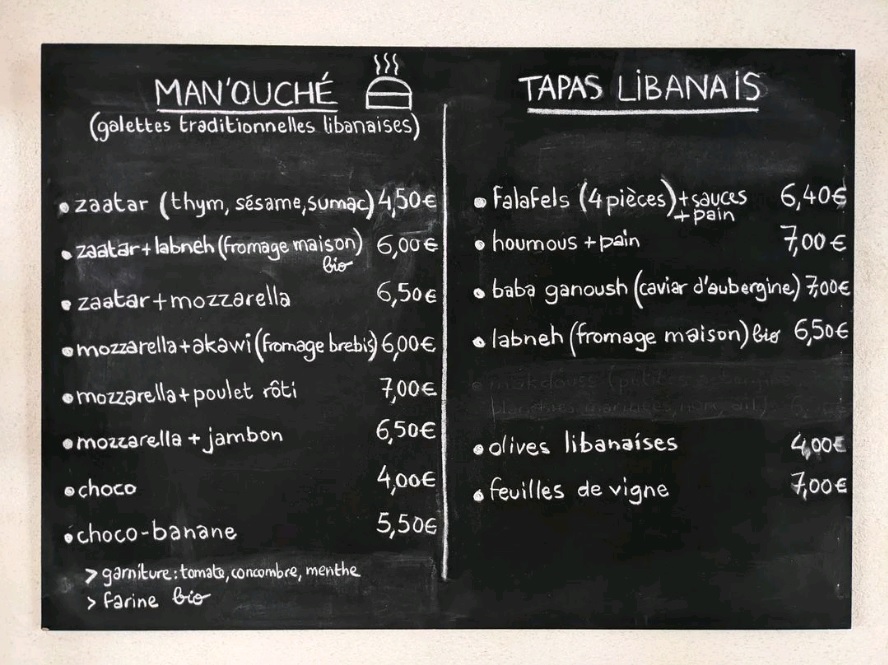 MAN'OUCHÉ
(galettes traditionnelles libanaises)
• zaatar (thym, sésame, sumac) 4,50€
• zaatar + labneh (fromage maison) 6,00€
bio
• zaatar + mozzarella 6,50€
• mozzarella + akawi (fromage brebis) 6,00€
• mozzarella + poulet rôti 7,00€
• mozzarella + jambon 6,50€
• choco 4,00€
• choco-banane 5,50€
> garniture : tomate, concombre, menthe
> farine bio
TAPAS LIBANAIS
• falafels (4 pièces) + sauces 6,40€
+ pain
• houmous + pain 7,00€
• baba ganoush (caviar d'aubergine) 7,00€
• labneh (fromage maison) bio 6,50€
• makdouss (petites
• olives libanaises 4,00€
• feuilles de vigne 7,00€